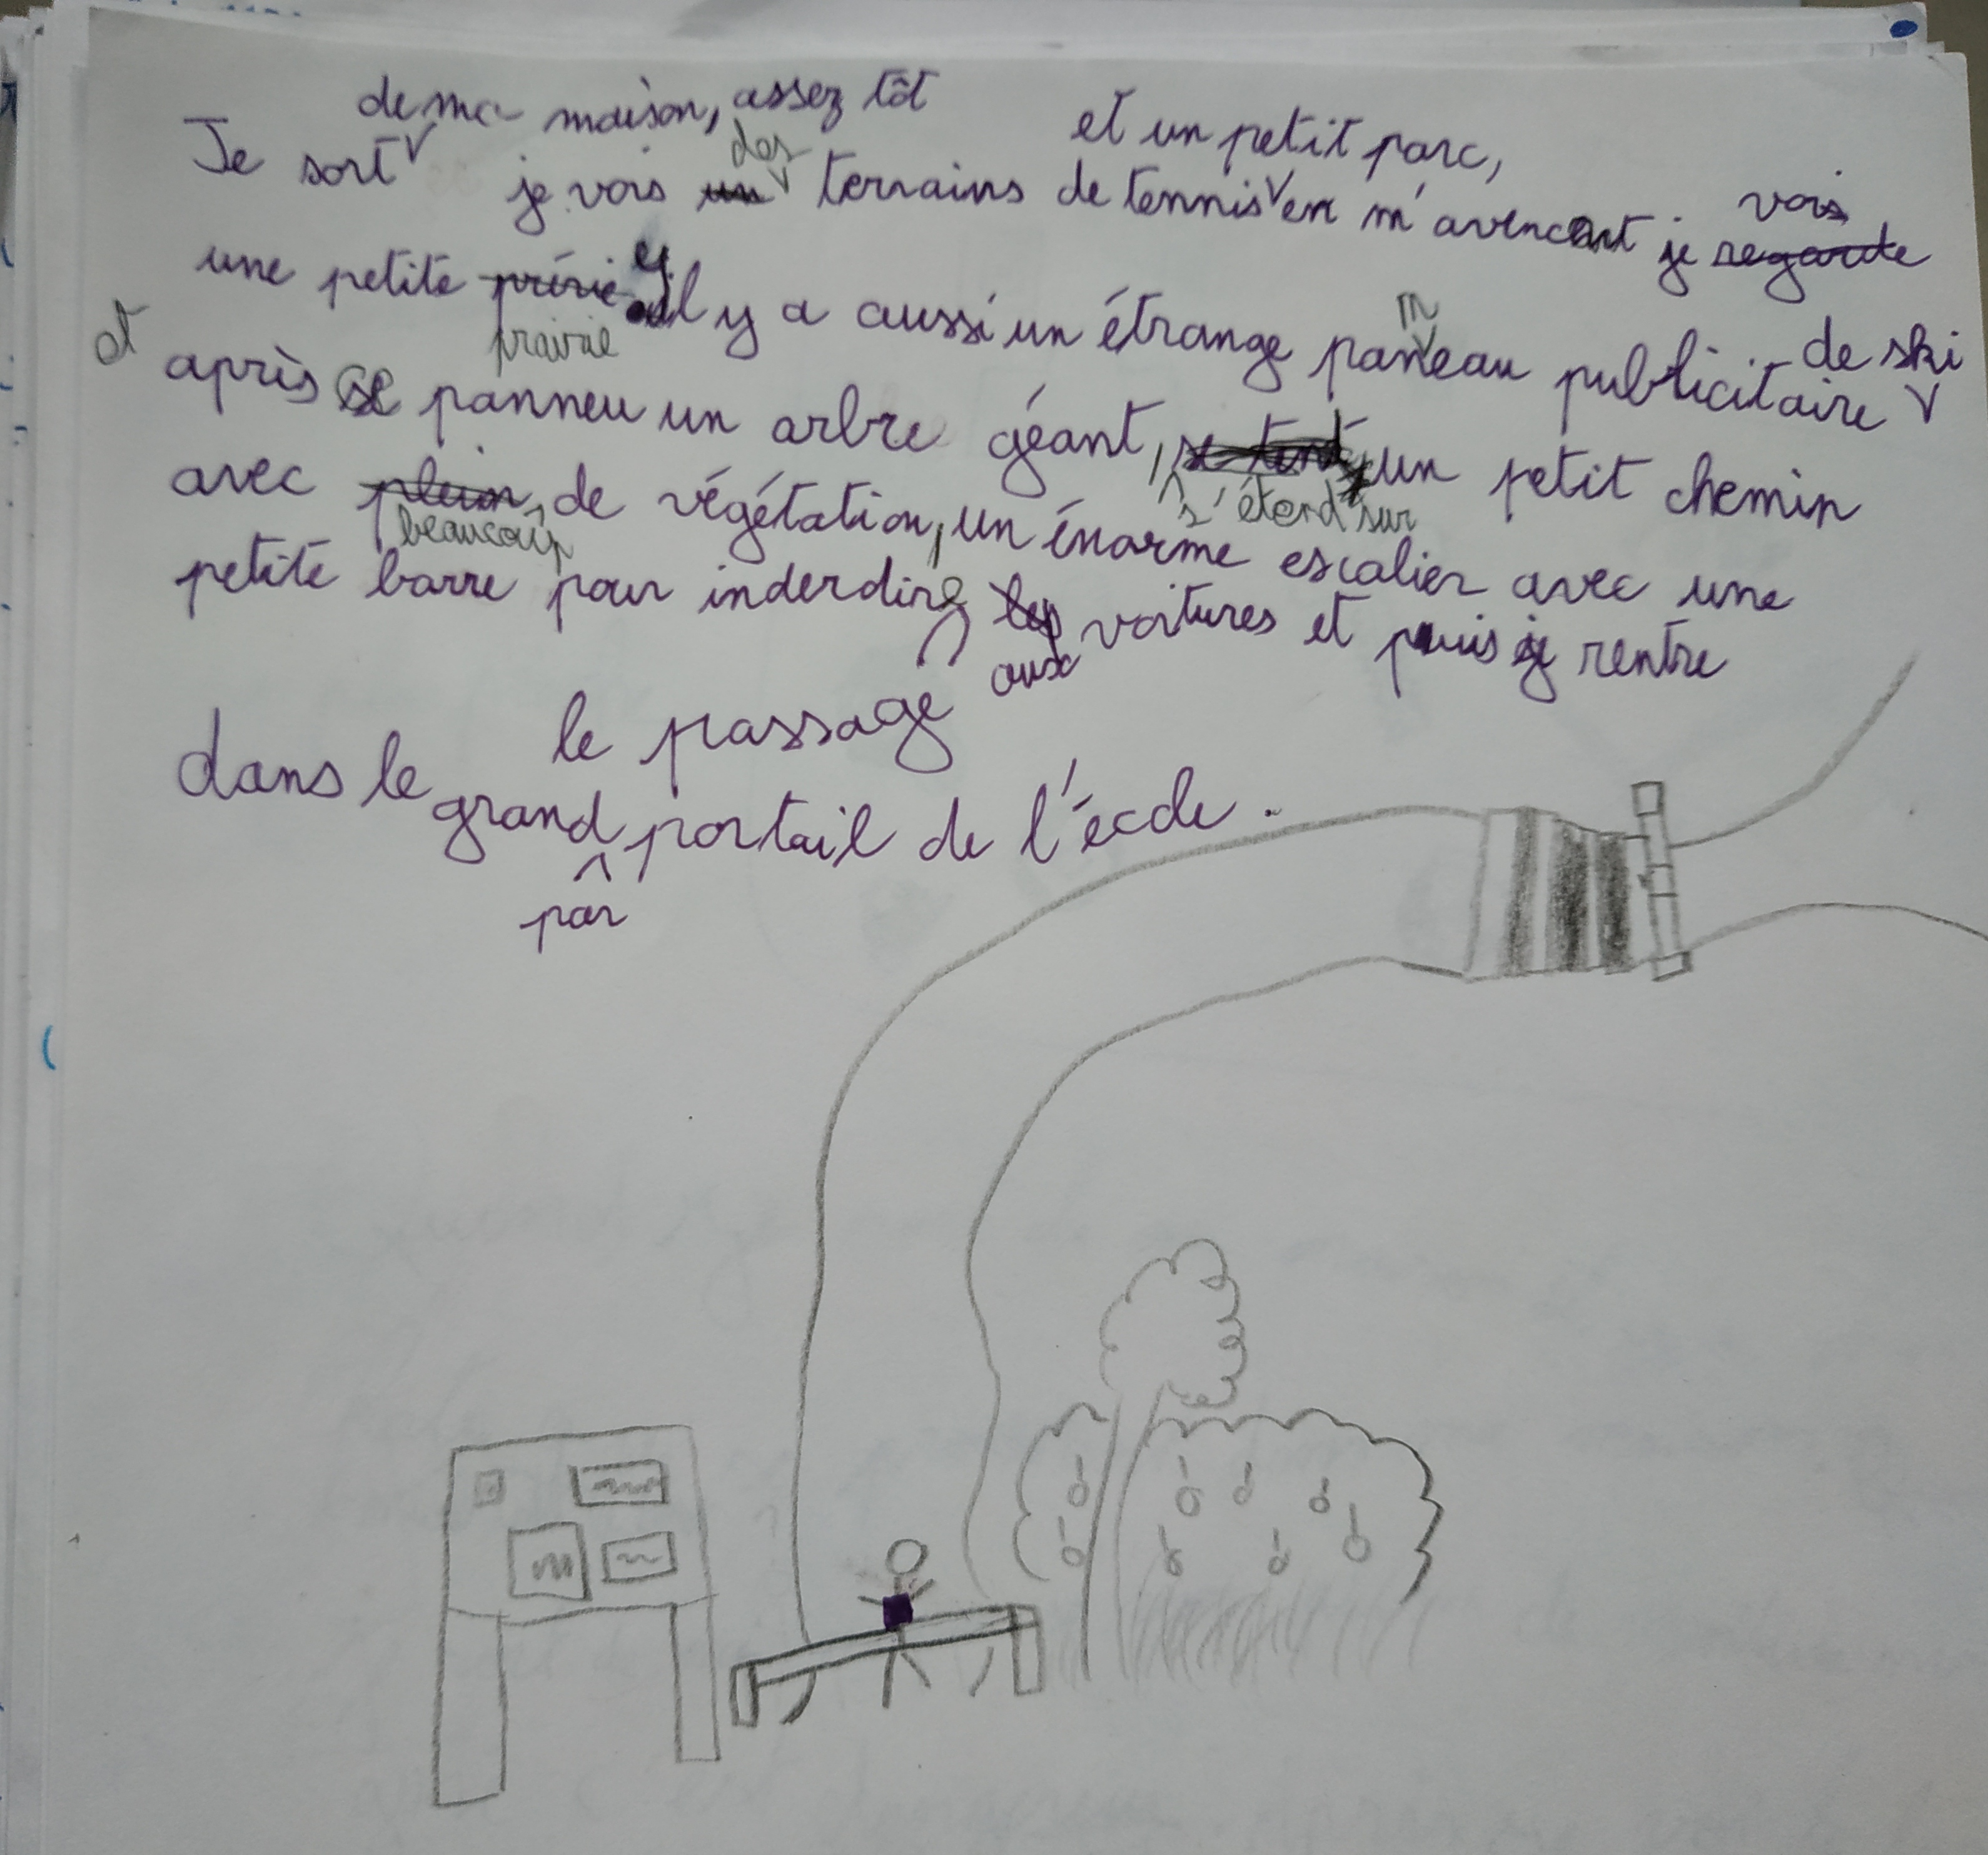 de ma maison, assez tôt et un petit parc,
Je sort je vois un des terrains de tennis en m'avencant je regarde vois
une petite prérie et il y a aussi un étrange paneau publicitaire de ski
prairie n
et après ce panneu un arbre géant, un petit chemin
s'étend sur
avec plein de végétation, un énorme escalier avec une
beaucoup
petite barre pour inderdire les voitures et puis je rentre
aux
le passage
dans le grand portail de l'école.
par